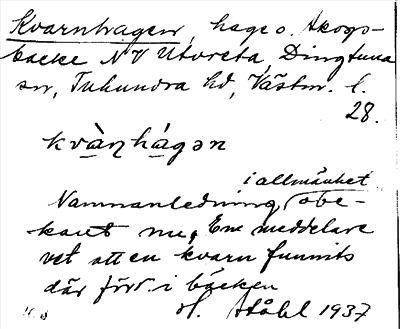 Kvarnhagen, hage o. skogs-
backe NV Utveta, Dingtuna
sn, Tuhundra hd, Västm. l.
28.
kvàṇhágən
i allmänhet
Namnanledning obe-
kant nu, En meddelare
vet att en kvarn funnits
där förr i bäcken
H. Ståhl 1937